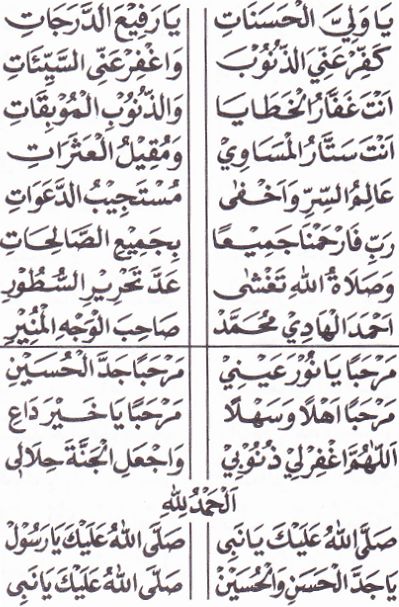 يَا وَلِيَّ الْحَسَنَاتِ يَا رَفِيْعَ الدَّرَجَاتِ
كَفِّرْ عَنِّيَ الذُّنُوْبَ وَاغْفِرْ عَنِّى السَّيِّئَاتِ
اَنْتَ غَفَّارُ الْخَطَايَا وَالذُّنُوْبِ الْمُوْبِقَاتِ
اَنْتَ سَتَّارُ الْمَسَاوِيْ وَمُقِيْلُ الْعَثَرَاتِ
عَالِمُ السِّرِّ وَاَخْفٰى مُسْتَجِيْبُ الدَّعَوَاتِ
رَبِّ فَارْحَمْنَا جَمِيْعًا بِجَمِيْعِ الصَّالِحَاتِ
وَصَلَاةُ اللهِ تَغْشٰى عَدَّ تَحْرِيْرِ السُّطُوْرِ
اَحْمَدَ الْهَادِيْ مُحَمَّدْ صَاحِبَ الْوَجْهِ الْمُنِيْرِ
مَرْحَبًا يَا نُوْرَ عَيْنِيْ مَرْحَبًا جَدَّ الْحُسَيْنِ
مَرْحَبًا اَهْلًا وَسَهْلًا مَرْحَبًا يَا خَيْرَ دَاعِ
اَللّٰهُمَّ اغْفِرْ لِيْ ذُنُوْبِيْ وَاجْعَلِ الْجَنَّةَ حَلَالِى
اَلْحَمْدُ لِلّٰهِ
صَلَّى اللهُ عَلَيْكَ يَا نَبِى صَلَّى اللهُ عَلَيْكَ يَا رَسُوْلْ
يَا جَدَّ الْحَسَنِ وَالْحُسَيْنْ صَلَّى اللهُ عَلَيْكَ يَا نَبِى